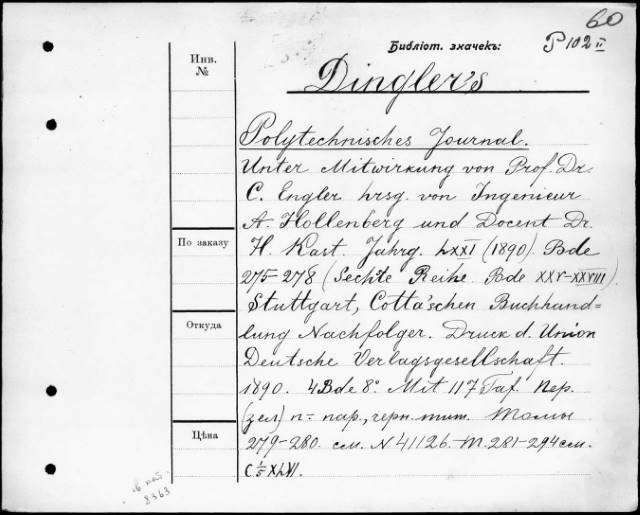 60
Библіот. значекъ: P 102 II
Инв. №
Dingler's
Polytechnisches Journal.
Unter Mitwirkung von Prof. Dr.
C. Engler hrsg. von Ingenieur
A. Hollenberg und Docent Dr.
По заказу
H. Kast. Jahrg. LXXI (1890). Bde
275-278 (Sechste Reihe. Bde XXV-XXVIII)
Stuttgart, Cotta'schen Buchhand=
Откуда
lung Nachfolger. Druck d. Union
Deutsche Verlagsgesellschaft.
1890. 4 Bde 8°. Mit 117 Taf. Пер.
(зел) п- пар, черн. тит. Томы
Цѣна
279-280. см. N 41126. Т. 281-294 см.
8363